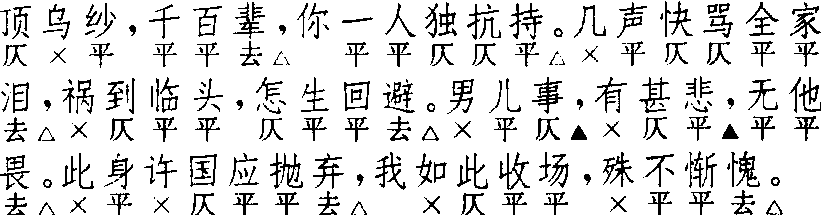 顶乌纱，千百辈，你一人独抗持。几声快骂全家
仄×平 平平去△ 平平仄仄平△×平仄仄平平
泪，祸到临头，怎生回避。男儿事，有甚悲，无他
去△×仄平平 仄平平去△×平仄▲×仄平▲平平
畏。此身许国应抛弃，我如此收场，殊不惭愧。
去△×平×仄平平去△ ×仄平平 ×平平去△